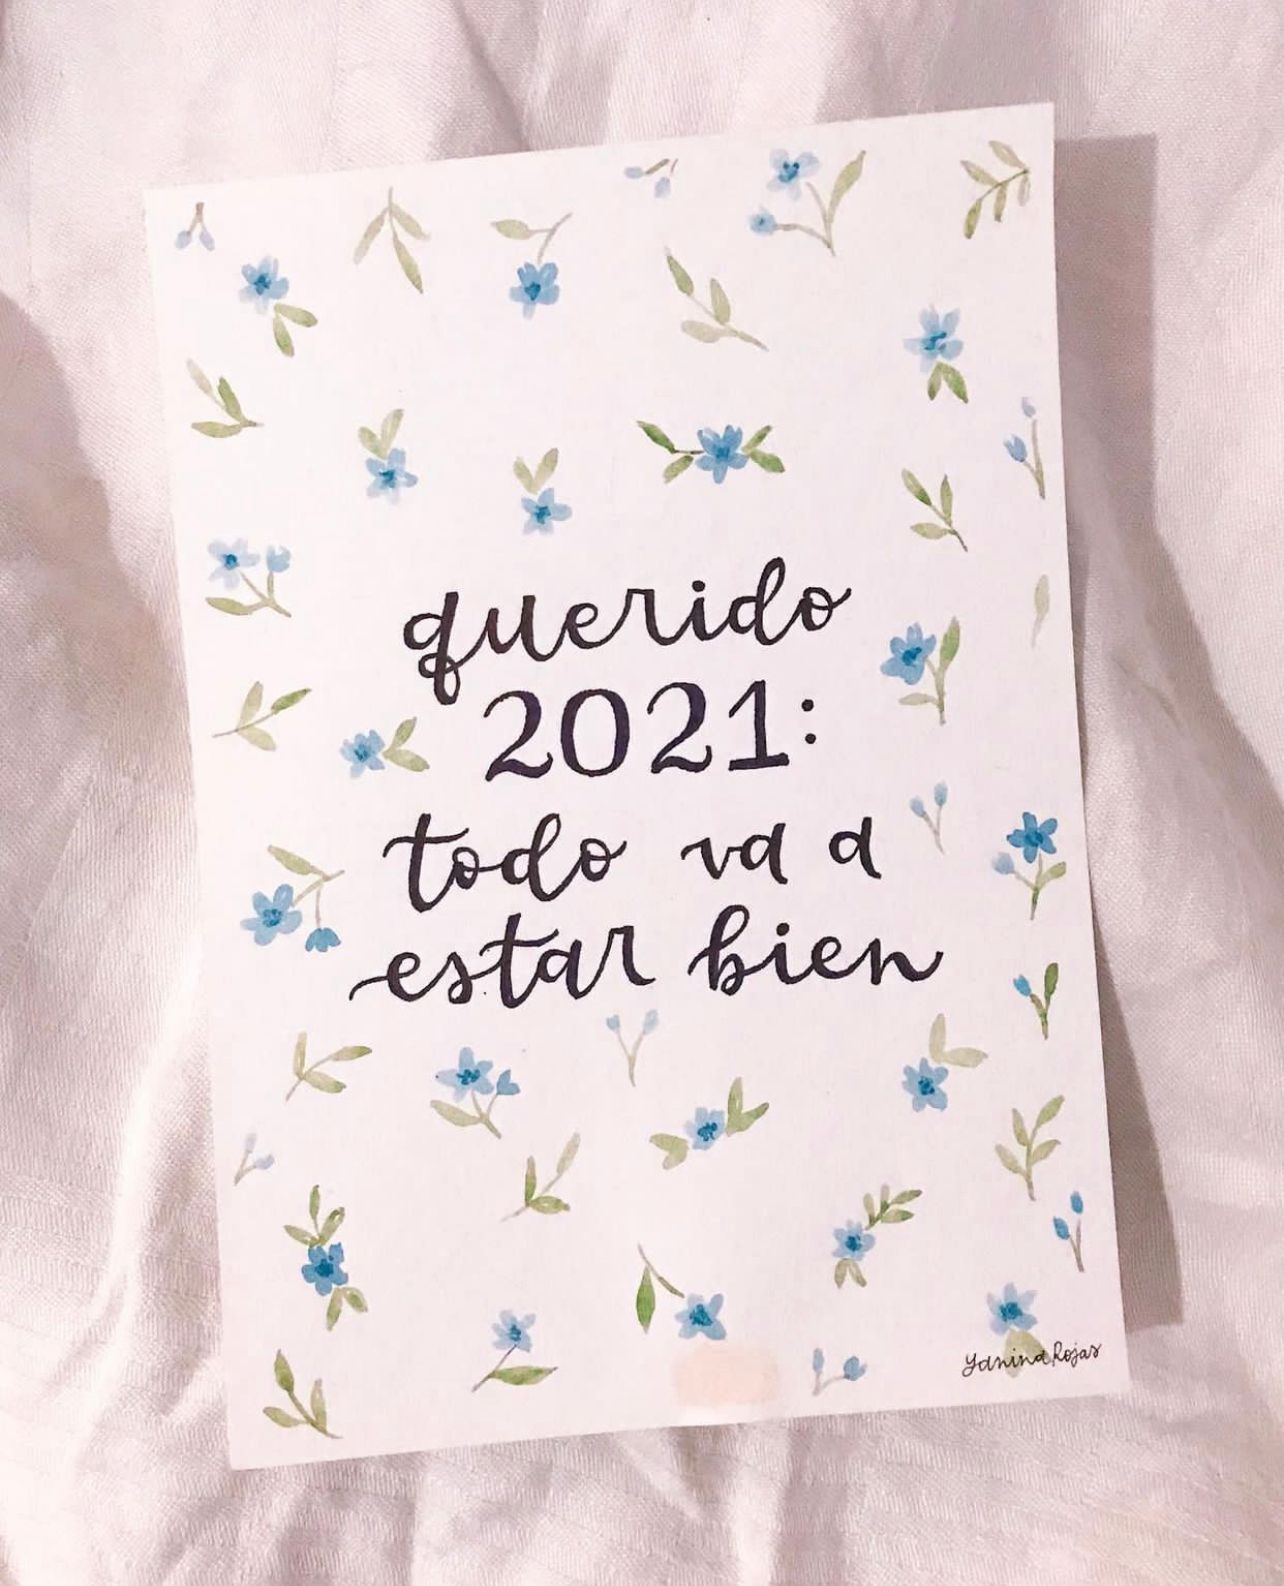 querido
2021:
todo va a
estar bien
Yanina Rojas